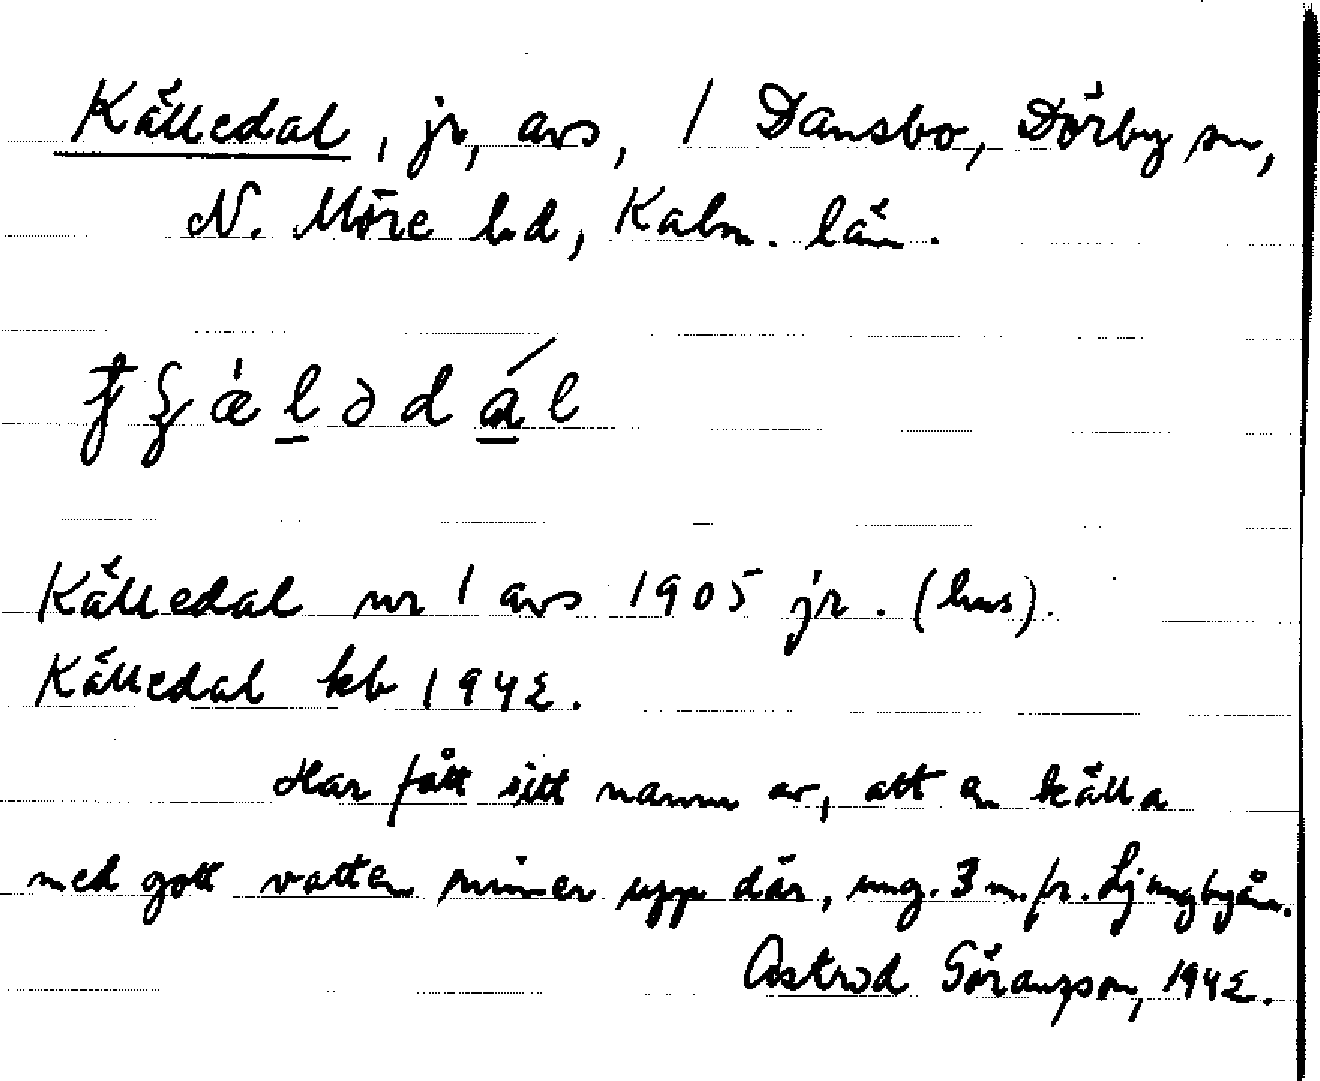 Källedal, jr, avs, 1 Dansbo, Dörby sn,
N. Möre hd, Kalm. län.
Källedal nr 1 avs 1905 jr. (hus).
Källedal kb 1942.
Har fått sitt namn av, att en källa
med gott vatten rinner upp där, ung. 3 m. fr. Ljungbyån.
Astrid Göranzson, 1942.